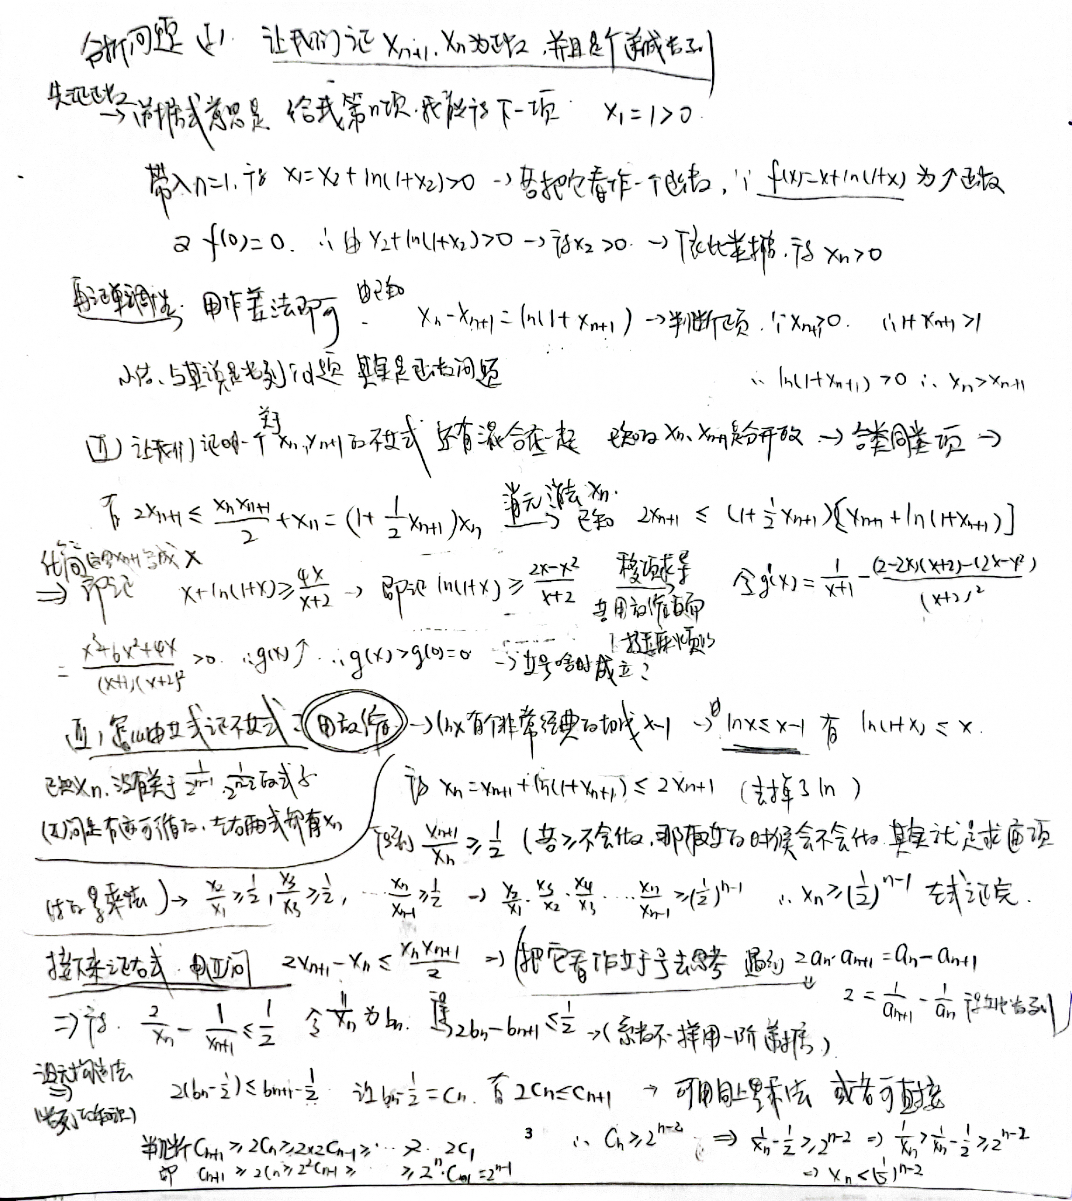 分析问题 (I). 让我们证 Xn+1, Xn 为正数, 并且是个递减数列
先证正数
→ 递推式意思是 给我第n项.我能得下一项. X₁=1>0.
带入n=1,得 X₁=X₂+ln(1+X₂)>0 → 若把它看作一个函数, ∵ f(x)=x+ln(1+x) 为↑函数
又 f(0)=0. ∴由 X₂+ln(1+X₂)>0 → 得X₂>0. → 依此类推,得 Xn>0
再证单调性: 用作差法即可 由已知 Xn-Xn+1=ln(1+Xn+1) → 判断正负. ∵Xn+1>0. ∴1+Xn+1>1
小结、与其说是数列问题 其实是函数问题 ∴ ln(1+Xn+1)>0 ∴ Xn>Xn+1
(II) 让我们证明一个关于Xn,Xn+1的不等式 还有混合在一起 已知的Xn,Xn+1是分开放 → 合类同类项 →
有 2Xn+1 ≤ XnXn+1/2 + Xn = (1+1/2 Xn+1)Xn 消元 消去Xn. → 已知 2Xn+1 ≤ (1+1/2 Xn+1)[Xn+1+ln(1+Xn+1)]
化简 写成X
⇒ 即证 X+ln(1+X) ≥ 4X/(X+2) → 即证 ln(1+X) ≥ (2X-X²)/(X+2) 移项求导 令g'(X)= 1/(X+1) - ((2-2X)(X+2)-(2X-X²))/(X+2)²
= (X³+6X²+4X)/((X+1)(X+2)²) >0. ∴g(x)↑ ∴g(x)>g(0)=0 → 等号啥时成立?
用放缩 → lnx有个非常经典的切线x-1 → lnx≤x-1 有 ln(1+X) ≤ X.
已知Xn,没有关于 的式子 得 Xn=Xn+1+ln(1+Xn+1) ≤ 2Xn+1 (去掉了ln)
左右两式都有Xn 得到 Xn+1/Xn ≥ 1/2 (若≥不会做,那取等的时候会不会做 其实就是求通项
法的累乘法) → X₂/X₁ ≥ 1/2, X₃/X₂ ≥ 1/2, … Xn/Xn-1 ≥ 1/2 → X₂/X₁·X₃/X₂·X₄/X₃ … Xn/Xn-1 ≥ (1/2)^(n-1) ∴ Xn ≥ (1/2)^(n-1) 左式证完.
接下来证右式.用II问 2Xn+1-Xn ≤ XnXn+1/2 → (把它看作等于号去思考 遇到 2an·an+1=an-an+1
2= 1/an+1 - 1/an
⇒ 得. 2/Xn - 1/Xn+1 ≤ 1/2 令 1/Xn 为bn. 得 2bn-bn+1 ≤ 1/2 → (系数不一样用一阶递推)
待定构造法 ⇒ 2(bn-1/2) ≤ bn+1-1/2 记bn-1/2=Cn. 有 2Cn≤Cn+1 → 可用同上累乘法 或者可直接
判断 Cn+1≥2Cn≥2×2Cn-1≥…≥ 2C₁ ∴ Cn≥2^(n-2) ⇒ 1/Xn-1/2≥2^(n-2) ⇒ 1/Xn>1/Xn-1/2≥2^(n-2)
即 Cn+1≥2Cn≥2²Cn-1≥ ≥2ⁿ·C₁=2^(n-1) ⇒ Xn<(1/2)^(n-2)